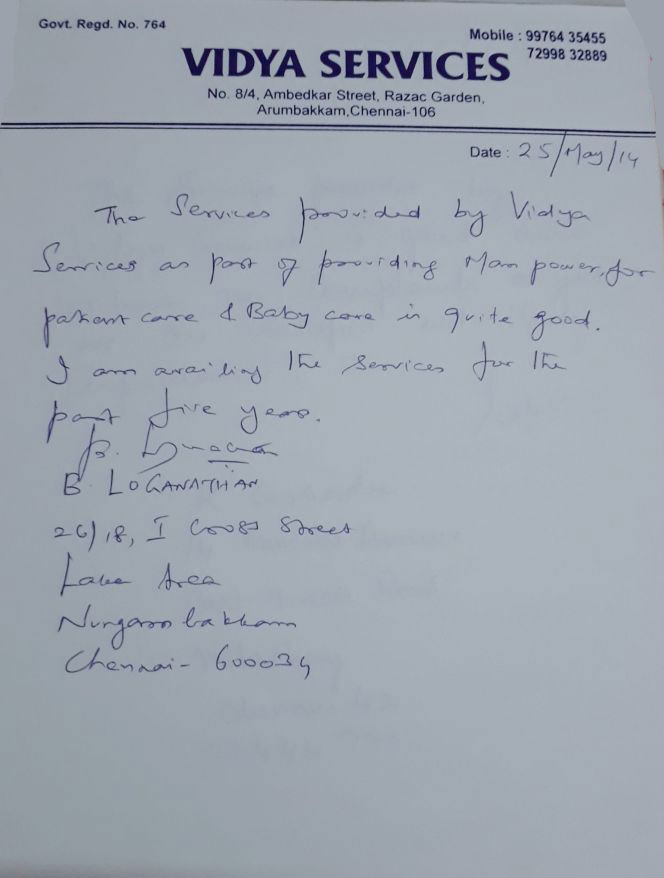 Govt. Regd. No. 764
Mobile : 99764 35455
72998 32889
VIDYA SERVICES
No. 8/4, Ambedkar Street, Razac Garden,
Arumbakkam,Chennai-106
Date : 25/May/14
The Services provided by Vidya
Services as part of providing Man power, for
patient care & Baby care is quite good.
I am availing the services for the
past five years.
B.
B. LOGANATHAN
26/18, I Cross Street
Lake Area
Nungambakkam
Chennai- 600034